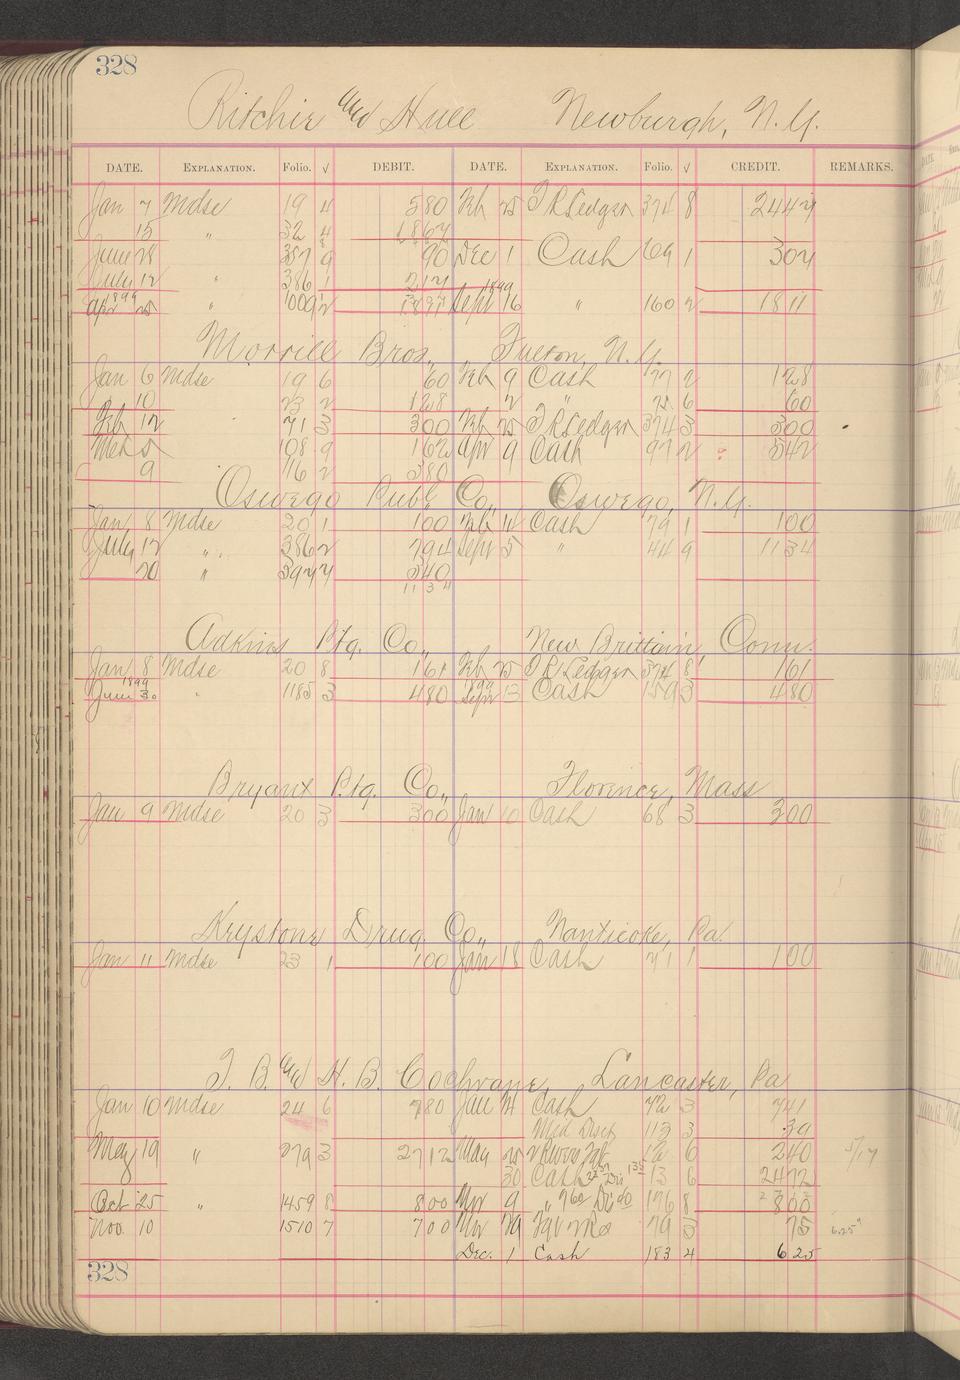 328
Ritchie and Hull Newburgh, N.Y.
DATE. EXPLANATION. Folio. √ DEBIT. DATE. EXPLANATION. Folio. √ CREDIT. REMARKS.
Jan 7 Mdse 19 4 580 Feb 25 T R Ledger 374 8 2447
15 " 32 4 1867
June 28 357 9 90 Dec 1 Cash 69 1 307
July 12 " 386 1 217
Apr 1899 25 1009 2 1811 Sept 1899 16 " 160 2 1811
Morrill Bros., Fulton, N.Y.
Jan 6 Mdse 19 6 60 Feb 9 Cash 77 2 128
10 23 2 128 2 " 75 6 60
Feb 12 71 3 300 Feb 25 T R Ledger 374 3 300
Mch 5 108 9 162 Apr 9 Cash 97 2 542
9 116 2 380
Oswego Publ Co., Oswego, N.Y.
Jan 8 Mdse 20 1 100 Feb 14 Cash 79 1 100
July 12 " 386 2 794 Sept 5 " 44 9 1134
20 " 397 7 340
1134
Adkins Ptg. Co., New Brittain, Conn.
Jan 8 Mdse 20 8 161 Feb 25 T R Ledger 374 8 161
June 1899 30 " 1185 3 480 Sept 1899 13 Cash 159 3 480
Bryant Ptg. Co., Florence, Mass
Jan 9 Mdse 20 3 300 Jan 10 Cash 68 3 300
Keystone Drug. Co., Nanticoke, Pa.
Jan 11 Mdse 23 1 100 Jan 18 Cash 71 1 100
J. B. and H. B. Cochrane, Lancaster, Pa
Jan 10 Mdse 24 6 780 Jan 21 Cash 72 3 741
Mdse Disct 113 3 39
May 19 " 279 3 2712 May 25 6 240 5/17
30 Cash 13 6 2472
Oct 25 " 1459 8 800 Nov 9 " 176 8 800
Nov. 10 1510 7 700 Nov 29 79 3 75 6.25
Dec. 1 Cash 183 4 625
328